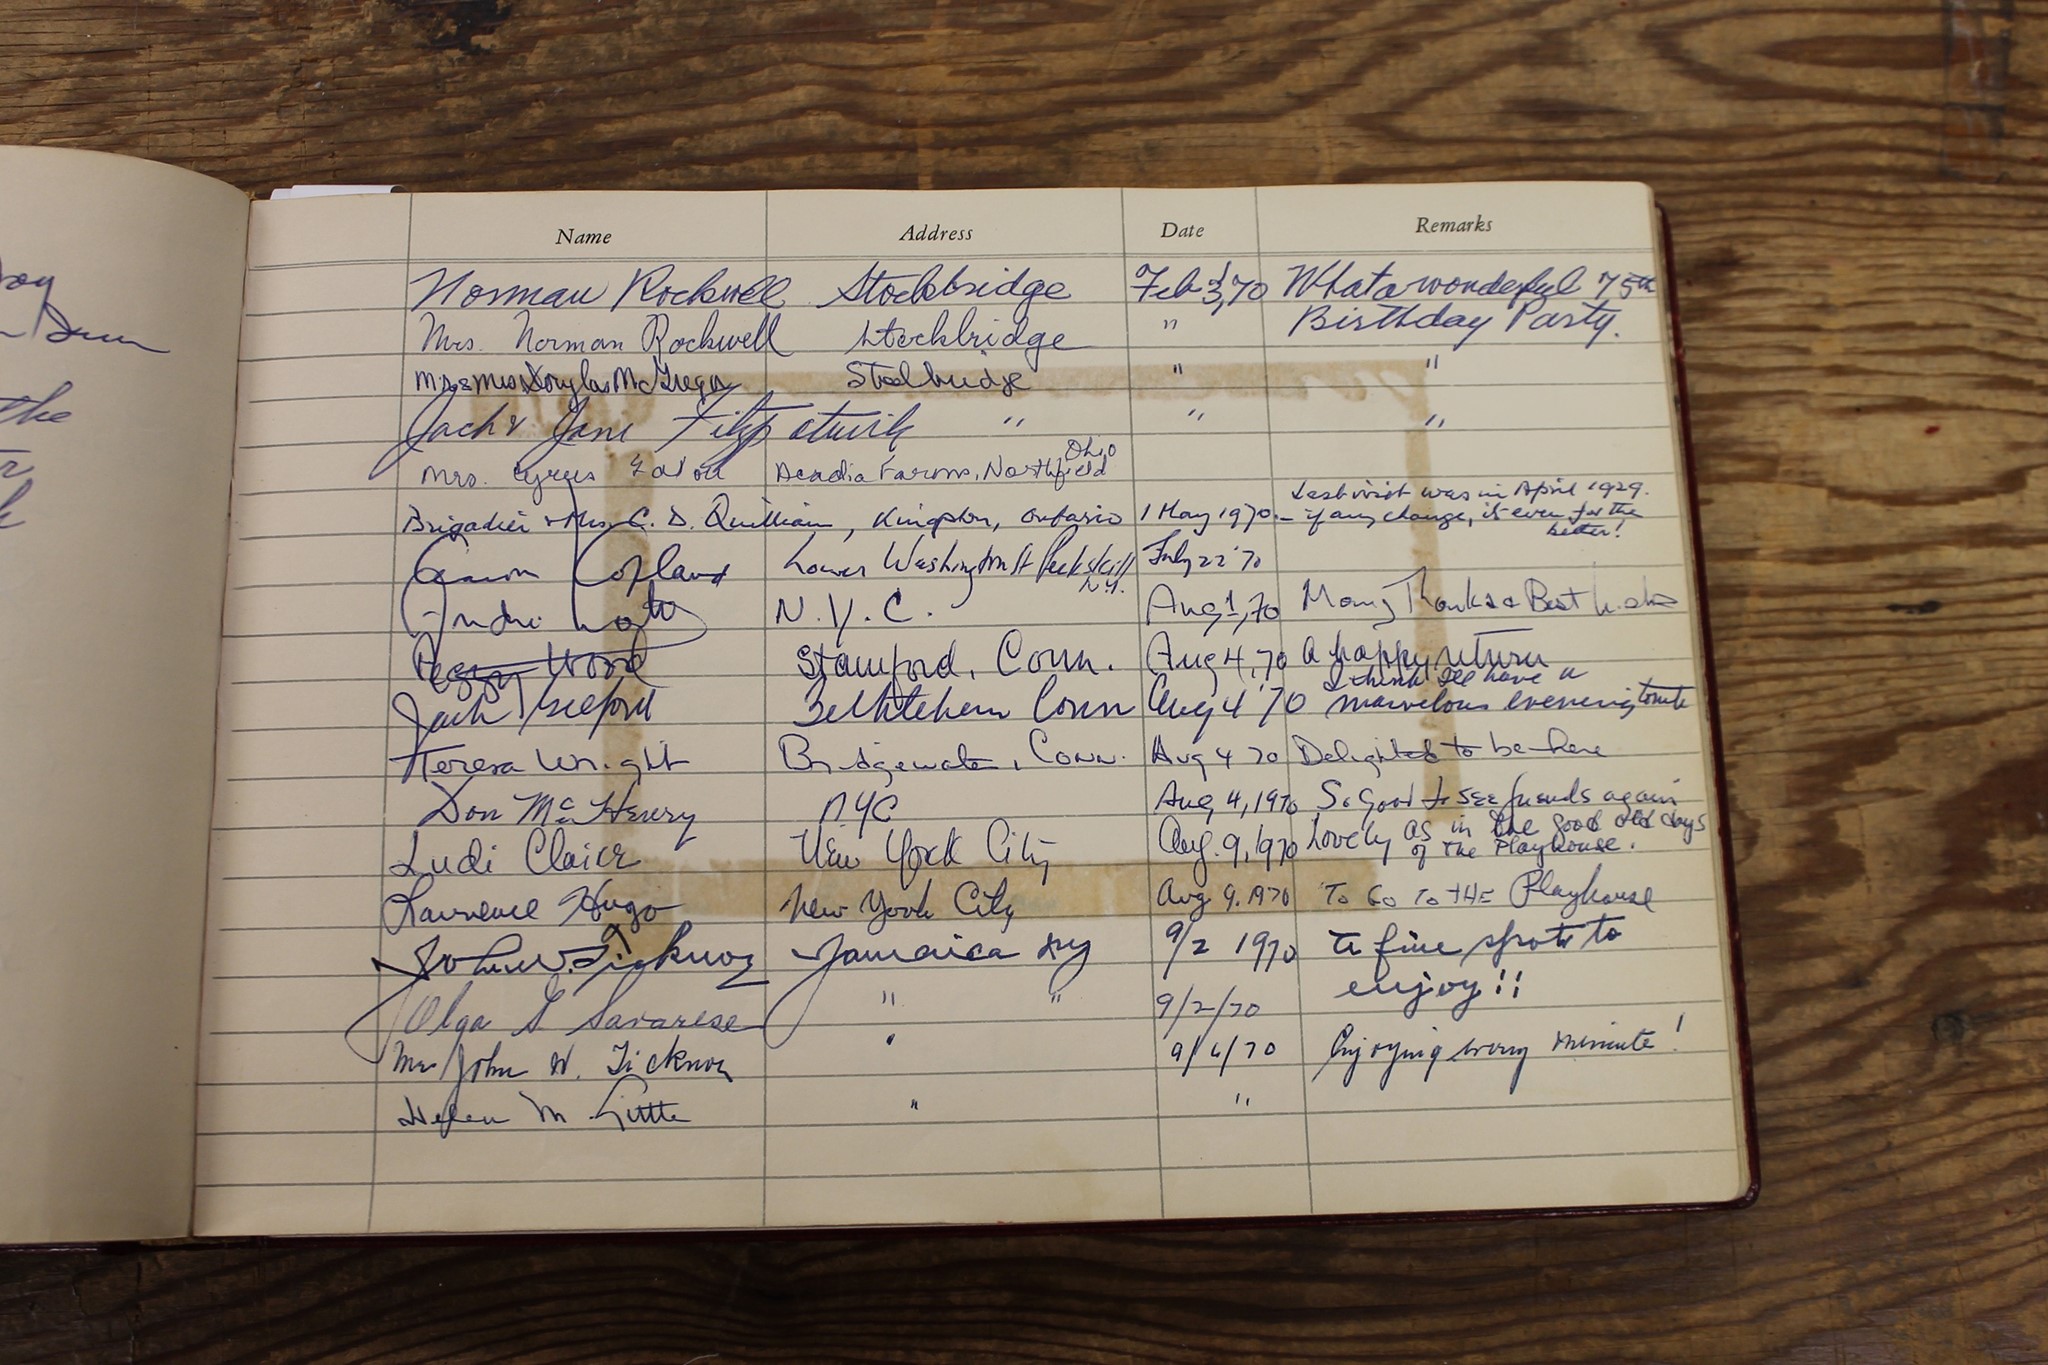 the
Name Address Date Remarks
Norman Rockwell Stockbridge Feb 3, 70 What a wonderful 75th
Birthday Party.
Mrs. Norman Rockwell Stockbridge "
Mr & Mrs Douglas McGregor Stockbridge " "
Jack & Jane Fitzpatrick " " "
Ohio
Mrs. Cyrus Eaton Acadia Farms, Northfield
Last visit was in April 1929.
Brigadier & Mrs. C. D. Quilliam, Kingston, Ontario 1 May 1970 – if any change, it's even for the
better!
Aaron Copland Lower Washington St Peekskill July 22 '70
N.Y.
N.Y.C. Aug 1, 70 Many Thanks & Best Wishes
Peggy Wood Stamford, Conn. Aug 4, 70 a happy return
I think I'll have a
Jack Gilford Bethlehem Conn Aug 4 '70 marvelous evening tonite
Teresa Wright Bridgewater, Conn. Aug 4 70 Delighted to be here
Don McHenry NYC Aug 4, 1970 So good to see friends again
Ludi Claire New York City Aug. 9, 1970 Lovely as in the good old days
of the Playhouse.
Lawrence Hugo New York City Aug 9. 1970 To Go To THE Playhouse
John W. Ticknor Jamaica NY 9/2 1970 fine spot to
enjoy!!
Olga S Savarese " " 9/2/70
Mrs John W. Ticknor " Enjoying every minute!
Helen M " "